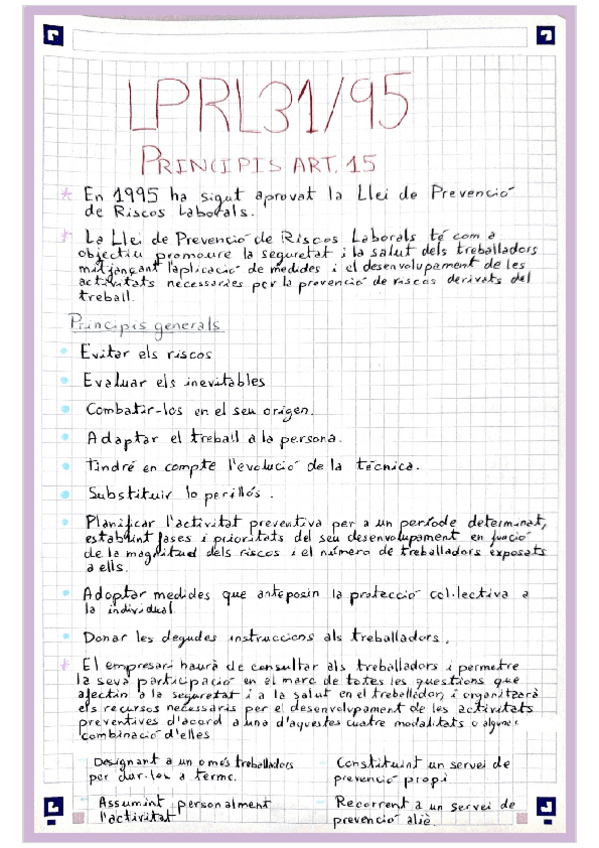 LPRL31/95
PRINCIPIS ART. 15
* En 1995 ha sigut aprovat la Llei de Prevenció
de Riscos Laborals.
* La Llei de Prevenció de Riscos Laborals té com a
objectiu promoure la seguretat i la salut dels treballadors
mitjançant l'aplicació de medides i el desenvolupament de les
activitats necessaries per la prevenció de riscos derivats del
treball.
Principis generals
• Evitar els riscos
• Evaluar els inevitables
• Combatir-los en el seu origen.
• Adaptar el treball a la persona.
• Tindré en compte l'evolució de la tècnica.
• Substituir lo perillós.
• Planificar l'activitat preventiva per a un període determinat,
establint fases i prioritats del seu desenvolupament en funció
de la magnitud dels riscos i el número de treballadors exposats
a ells.
• Adoptar medides que anteposin la protecció col·lectiva a
la individual
• Donar les degudes instruccions als treballadors.
* El empresari haurà de consultar als treballadors i permetre
la seva participació en el marc de totes les questions que
afectin a la seguretat i a la salut en el treballador, i organitzarà
els recursos necessaris per el desenvolupament de les activitats
preventives d'acord a una d'aquestes cuatre modalitats o alguna
combinació d'elles
- Designant a un o més treballadors
per dur-los a terme.
- Assumint personalment
l'activitat
- Constituint un servei de
prevenció propi.
- Recorrent a un servei de
prevenció aliè.